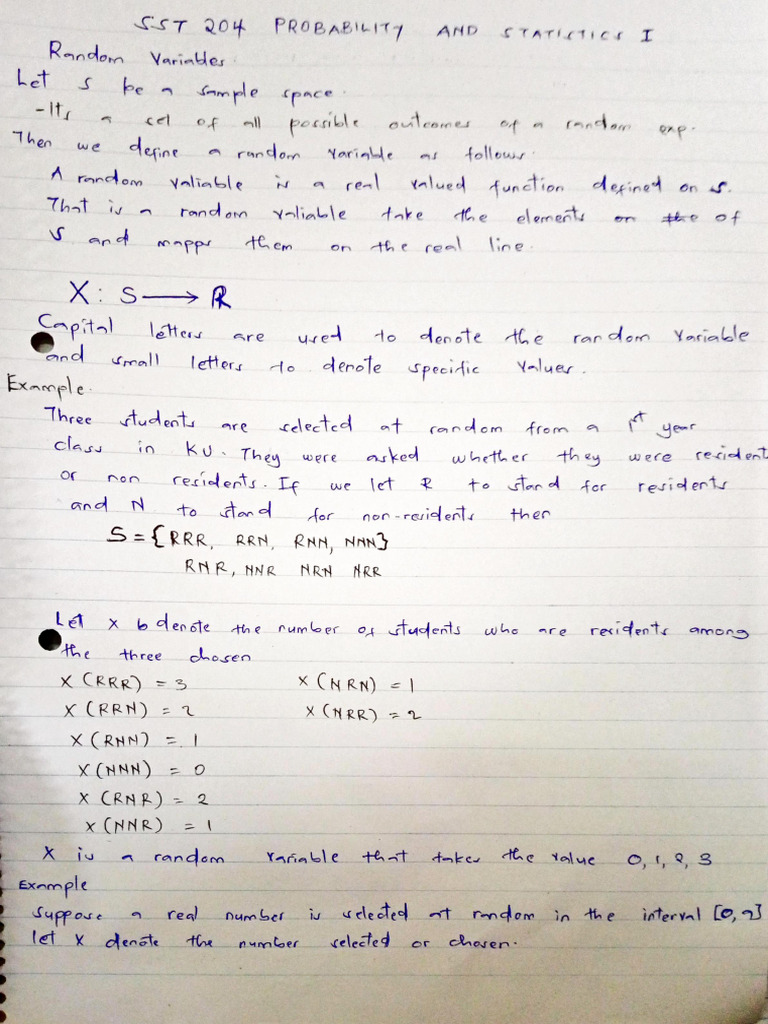 SST 204 PROBABILITY AND STATISTICS I
Random Variables.
Let S be a sample space.
-Its a set of all possible outcomes of a random exp.
Then we define a random variable as follows.
A random valiable is a real valued function defined on S.
That is a random valiable take the elements on the of
S and mapps them on the real line.
X: S → R
Capital letters are used to denote the random variable
and small letters to denote specific values.
Example.
Three students are selected at random from a 1st year
class in KU. They were asked whether they were resident
or non residents. If we let R to stand for residents
and N to stand for non-residents then
S = {RRR, RRN, RNN, NNN}
RNR, NNR NRN NRR
Let X b denote the number of students who are residents among
the three chosen
X (RRR) = 3 X (NRN) = 1
X (RRN) = 2 X (NRR) = 2
X (RNN) = 1
X (NNN) = 0
X (RNR) = 2
X (NNR) = 1
X is a random variable that takes the value 0, 1, 2, 3
Example
Suppose a real number is selected at random in the interval
let X denote the number selected or chosen.